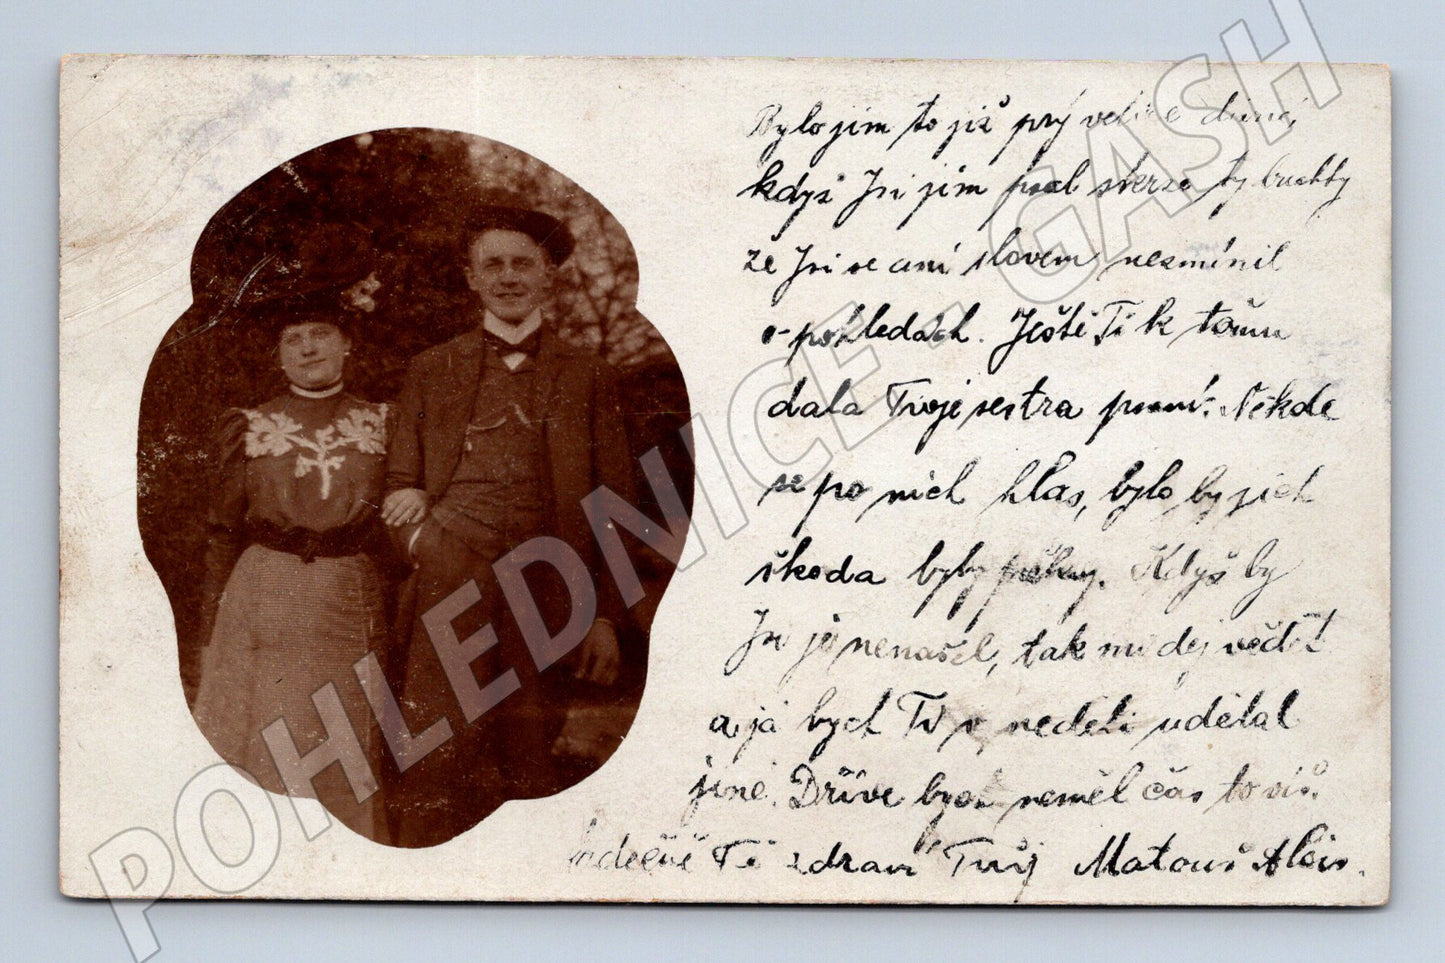 Bylo jim to již prý velice divné,
když Jsi jim psal skrze ty buchty
že Jsi se ani slovem nezmínil
o pohledách. Ještě Ti k tomu
dala Tvoje sestra psaní. Někde
se po nich hlas, bylo by jich
škoda byly pěkny. Kdyš by
Jsi je nenašel, tak mi dej vědět
a já bych Ti v neděli udělal
jiné. Dříve bych neměl čas to víš.
Srdečně Tě zdraví Tvůj Matouš Alois.
POHLEDNICE - GASH